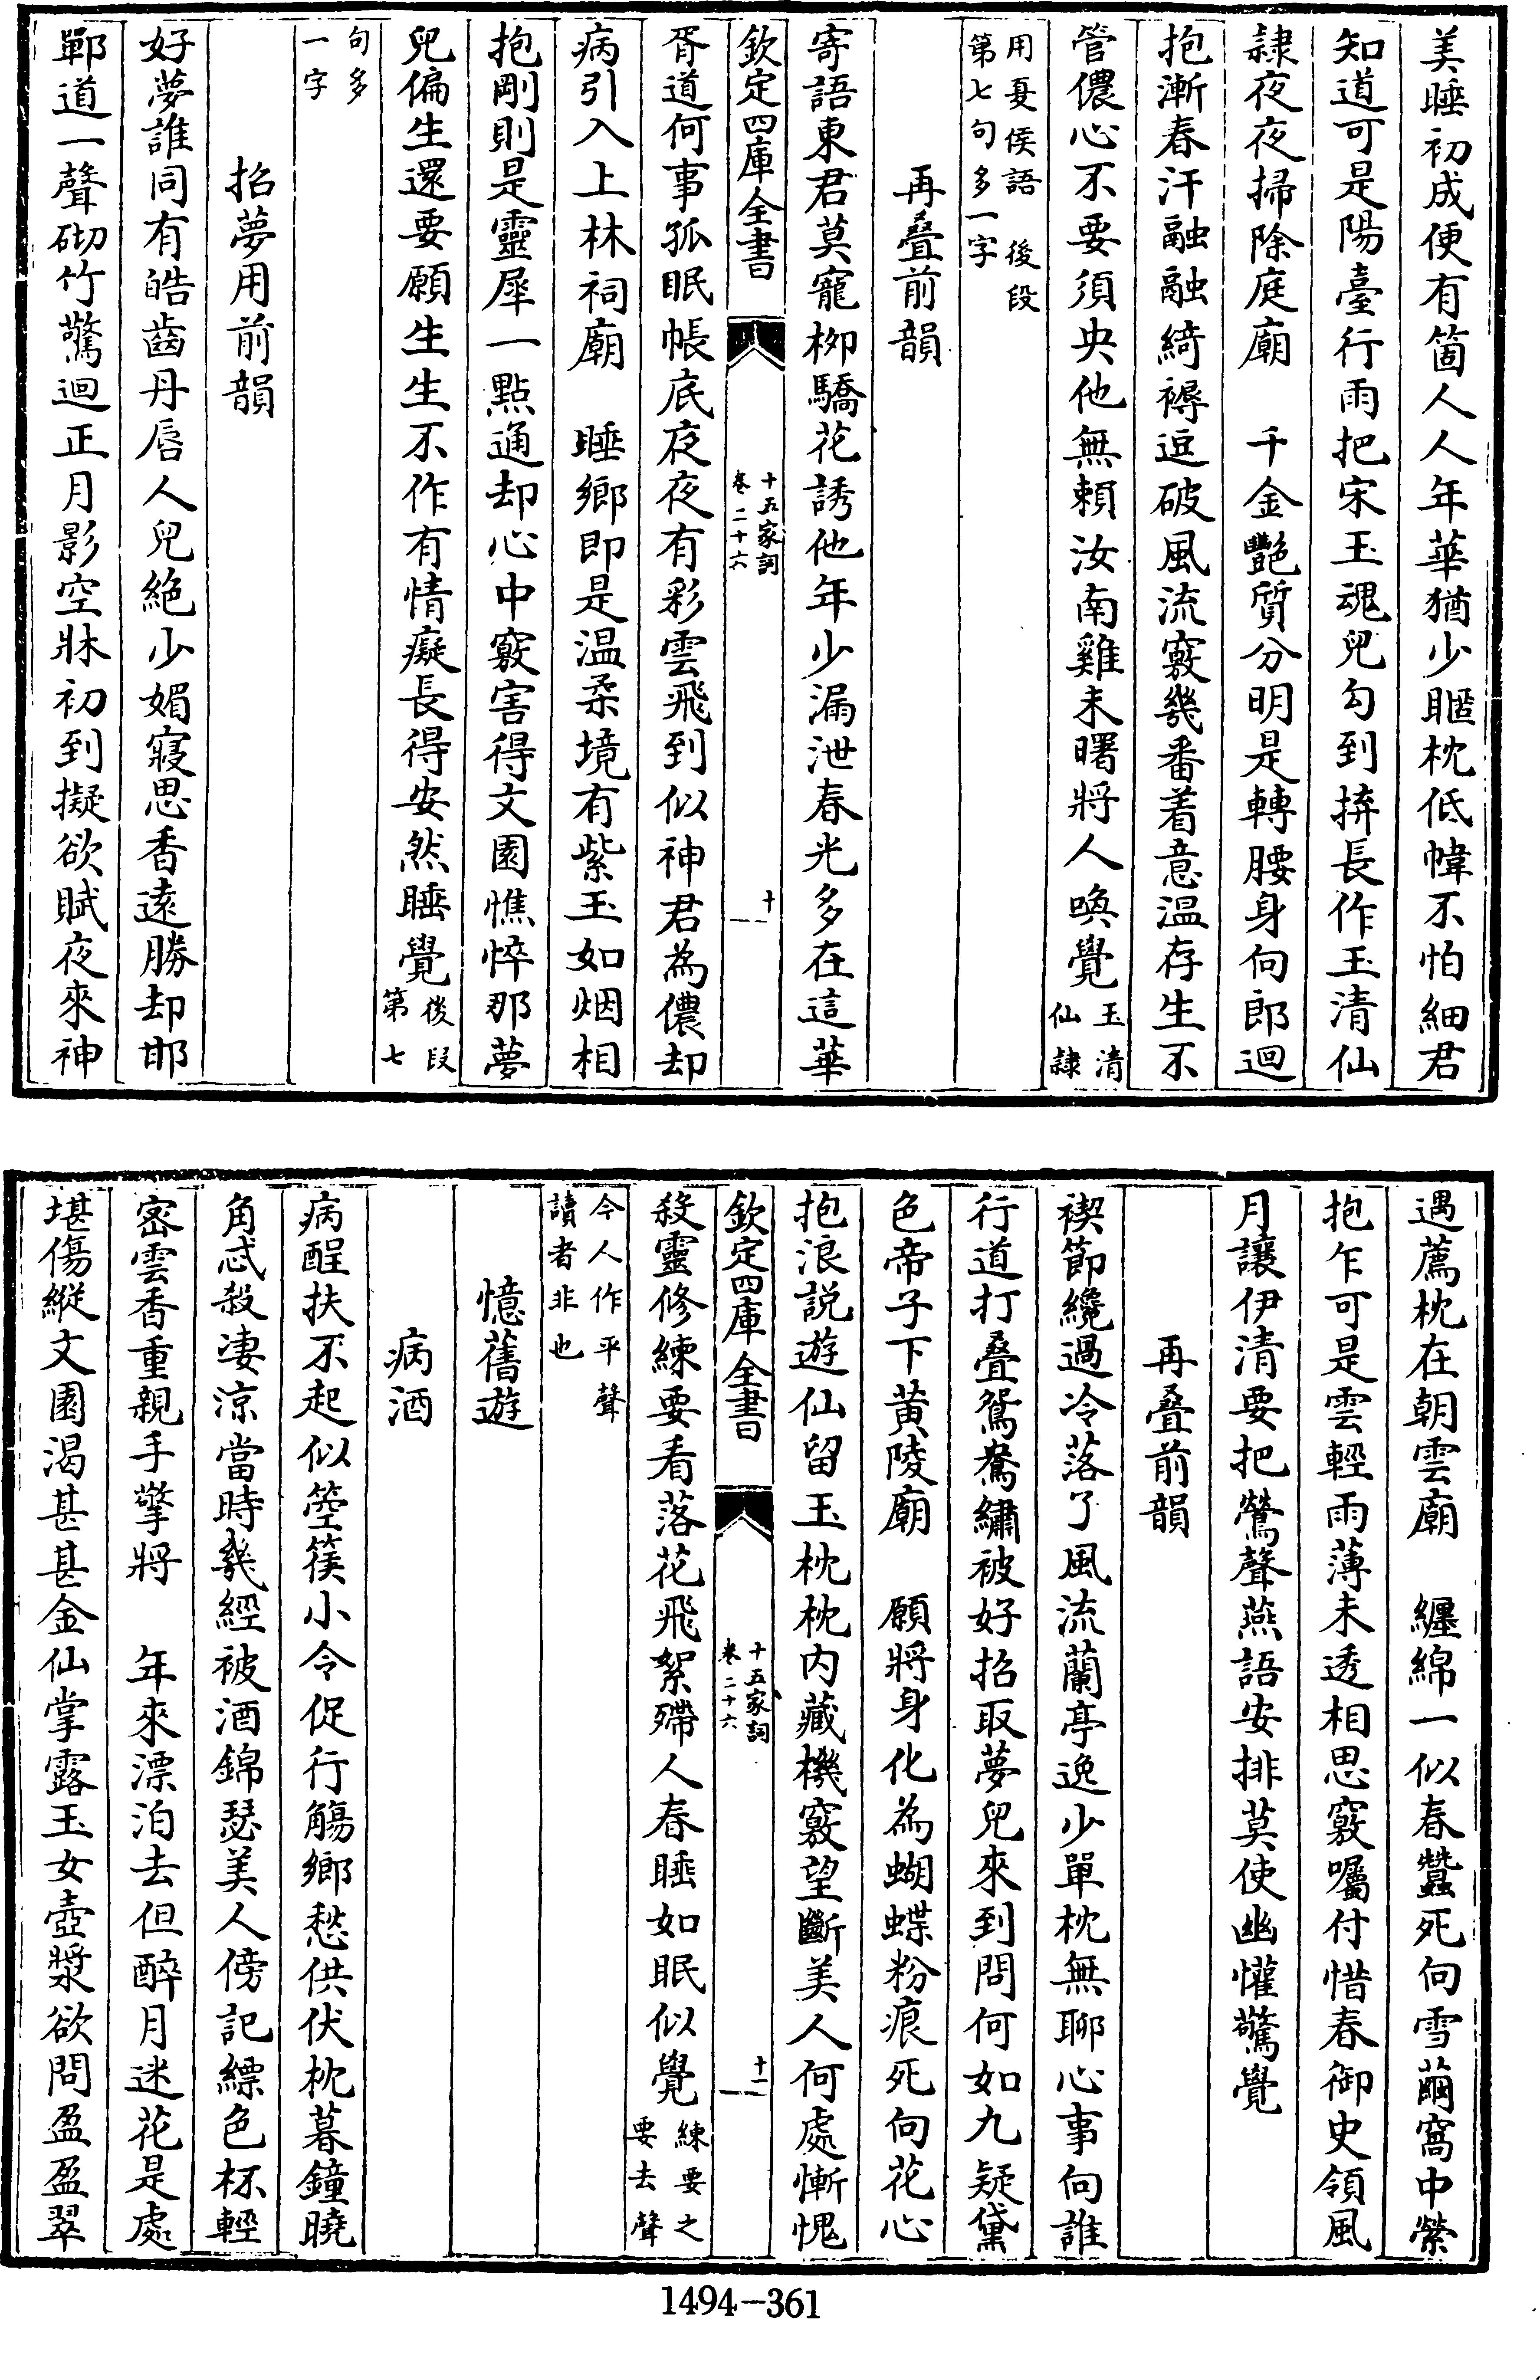 美睡初成便有箇人人年華猶少䁥枕低幃不怕細君
知道可是陽臺行雨把宋玉魂兒勾到拚長作玉清仙
隷夜夜掃除庭廟　千金艷質分明是轉腰身向郎迴
抱漸春汗融融綺褥逗破風流竅幾番着意温存生不
管儂心不要須央他無賴汝南雞未曙將人喚覺玉清仙隷
用夏侯語　後段第七句多一字
再疊前韻
寄語東君莫寵柳驕花誘他年少漏泄春光多在這華
欽定四庫全書
十五家詞
卷二十六
十一
胥道何事孤眠帳底夜夜有彩雲飛到似神君為儂却
病引入上林祠廟　睡鄉即是温柔境有紫玉如烟相
抱剛則是靈犀一點通却心中竅害得文園憔悴那夢
兒偏生還要願生生生不作有情癡長得安然睡覺後段第七
句多一字
招夢用前韻
好夢誰同有皓齒丹唇人兒絶少媚寢思香遠勝却邯
鄲道一聲砌竹驚迴正月影空牀初到擬欲賦夜來神
遇薦枕在朝雲廟　纏綿一似春蠶死向雪繭窩中縈
抱乍可是雲輕雨薄未透相思竅囑付惜春御史領風
月讓伊清要把鶯聲燕語安排莫使幽懽驚覺
再疊前韻
禊節纔過冷落了風流蘭亭逸少單枕無聊心事向誰
行道打疊鴛鴦繡被好招取夢兒來到問何如九疑黛
色帝子下黄陵廟　願將身化為蝴蝶粉痕死向花心
抱浪説遊仙留玉枕枕内藏機竅望斷美人何處慚愧
欽定四庫全書
十五家詞
卷二十六
十一
殺靈修練要看落花飛絮殢人春睡如眠似覺練要之要去聲
今人作平聲讀者非也
憶舊遊
病酒
病酲扶不起似箜篌小令促行觴鄉愁供伏枕暮鐘曉
角忒殺淒涼當時幾經被酒錦瑟美人傍記縹色杯輕
密雲香重親手擎將　年來漂泊去但醉月迷花是處
堪傷縱文園渴甚甚金仙掌露玉女壺漿欲問盈盈翠
1494-361